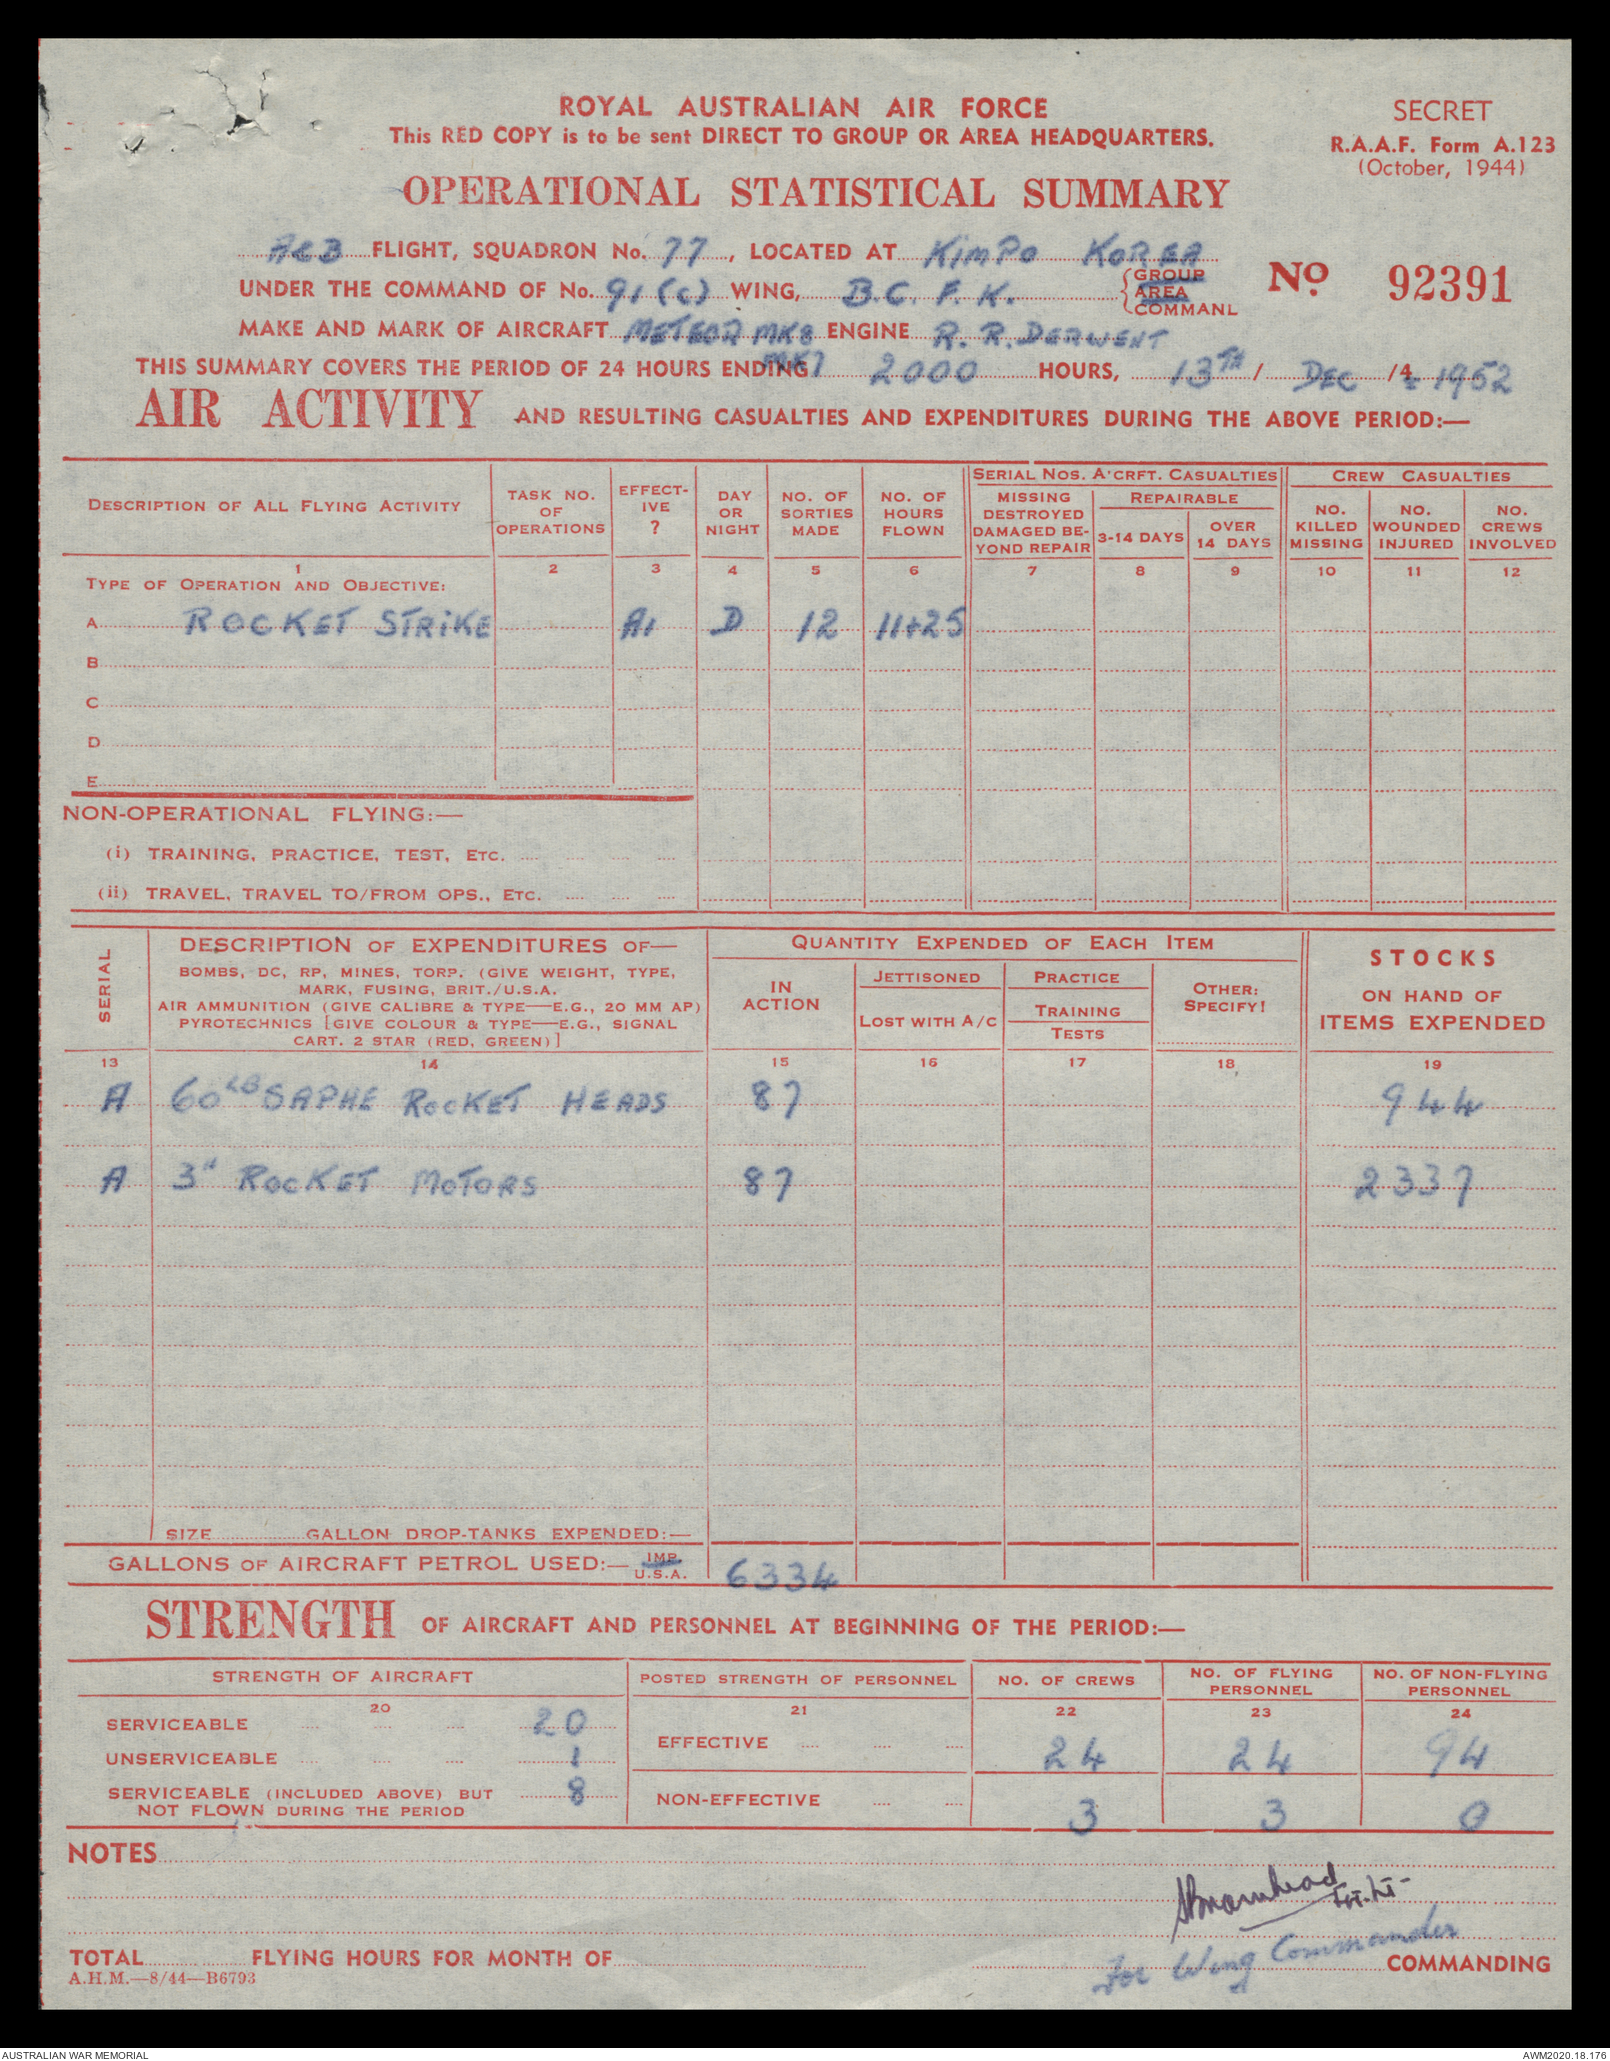 ROYAL AUSTRALIAN AIR FORCE
This RED COPY is to be sent DIRECT TO GROUP OR AREA HEADQUARTERS.
SECRET
R.A.A.F. Form A.123
(October, 1944)
OPERATIONAL STATISTICAL SUMMARY
A&B FLIGHT, SQUADRON No. 77, LOCATED AT KIMPO KOREA
UNDER THE COMMAND OF No. 91 (C) WING, B.C. F. K. GROUP AREA COMMAND
No. 92391
MAKE AND MARK OF AIRCRAFT METEOR MK8 MK7 ENGINE R. R. DERWENT
THIS SUMMARY COVERS THE PERIOD OF 24 HOURS ENDING 2000 HOURS, 13TH / DEC /4 1952
AIR ACTIVITY AND RESULTING CASUALTIES AND EXPENDITURES DURING THE ABOVE PERIOD:—
DESCRIPTION OF ALL FLYING ACTIVITY
TASK NO. OF OPERATIONS
EFFECT-IVE ?
DAY OR NIGHT
NO. OF SORTIES MADE
NO. OF HOURS FLOWN
SERIAL NOS. A'CRFT. CASUALTIES
MISSING DESTROYED DAMAGED BE-YOND REPAIR
REPAIRABLE
3-14 DAYS
OVER 14 DAYS
CREW CASUALTIES
NO. KILLED MISSING
NO. WOUNDED INJURED
NO. CREWS INVOLVED
1 2 3 4 5 6 7 8 9 10 11 12
TYPE OF OPERATION AND OBJECTIVE:
A ROCKET STRIKE A1 D 12 11+25
B
C
D
E
NON-OPERATIONAL FLYING:—
(i) TRAINING, PRACTICE, TEST, ETC. .... .... .... ....
(ii) TRAVEL, TRAVEL TO/FROM OPS., ETC. .... .... ....
SERIAL
DESCRIPTION OF EXPENDITURES OF—
BOMBS, DC, RP, MINES, TORP. (GIVE WEIGHT, TYPE,
MARK, FUSING, BRIT./U.S.A.
AIR AMMUNITION (GIVE CALIBRE & TYPE—E.G., 20 MM AP)
PYROTECHNICS [GIVE COLOUR & TYPE—E.G., SIGNAL
CART. 2 STAR (RED, GREEN)]
QUANTITY EXPENDED OF EACH ITEM
IN ACTION
JETTISONED
LOST WITH A/C
PRACTICE
TRAINING
TESTS
OTHER: SPECIFY!
STOCKS
ON HAND OF
ITEMS EXPENDED
13 14 15 16 17 18 19
A 60LB SAPHE ROCKET HEADS 87 944
A 3" ROCKET MOTORS 87 2337
SIZE GALLON DROP-TANKS EXPENDED:—
GALLONS OF AIRCRAFT PETROL USED:— IMP. U.S.A. 6334
STRENGTH OF AIRCRAFT AND PERSONNEL AT BEGINNING OF THE PERIOD:—
STRENGTH OF AIRCRAFT
POSTED STRENGTH OF PERSONNEL
NO. OF CREWS
NO. OF FLYING PERSONNEL
NO. OF NON-FLYING PERSONNEL
20 21 22 23 24
SERVICEABLE .... .... .... 20
UNSERVICEABLE .... .... .... 1
SERVICEABLE (INCLUDED ABOVE) BUT
NOT FLOWN DURING THE PERIOD 8
EFFECTIVE .... .... .... 24 24 94
NON-EFFECTIVE .... .... 3 3 0
NOTES
Flt. Lt.
For Wing Commander
TOTAL FLYING HOURS FOR MONTH OF COMMANDING
A.H.M.—8/44—B6793
AUSTRALIAN WAR MEMORIAL
AWM2020.18.176